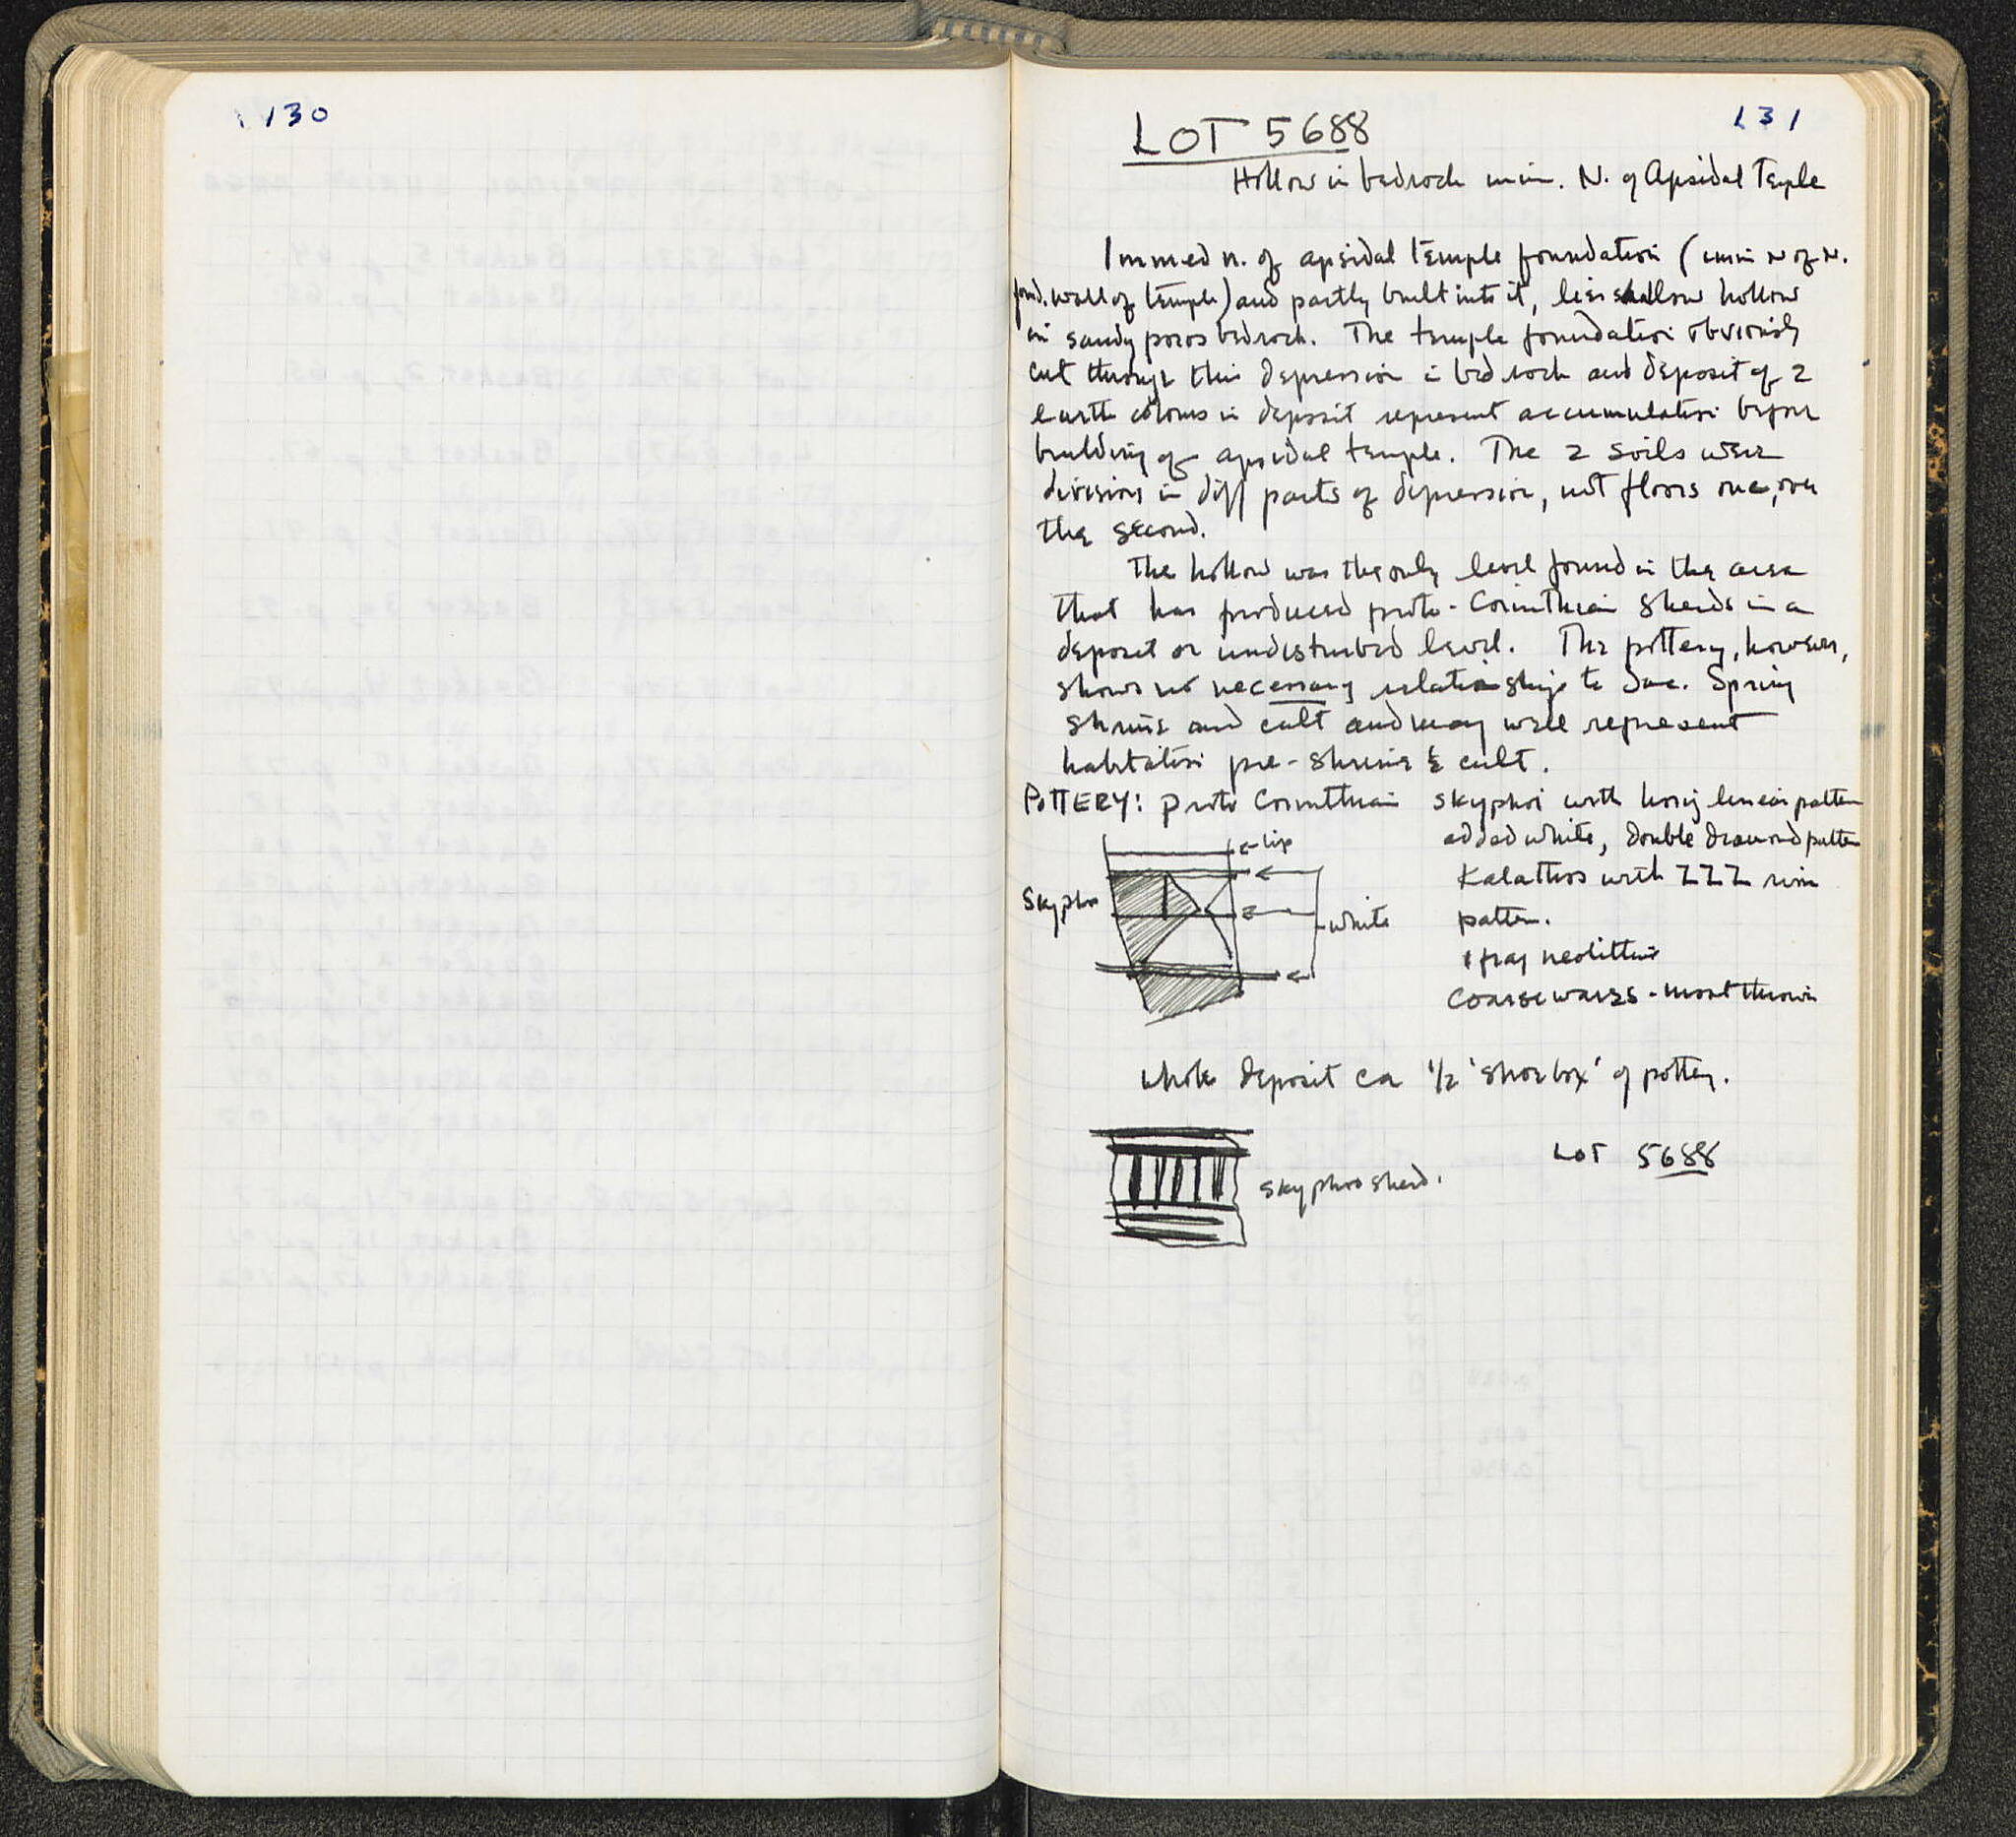 130
131
LOT 5688
Hollow in bedrock imm. N. of Apsidal Temple
Immed n. of apsidal temple foundation (imm N of N.
found. wall of temple) and partly built into it, lies shallow hollow
in sandy poros bedrock. The temple foundation obviously
cut through this depression in bedrock and deposit of 2
earth colours in deposit represent accumulation before
building of apsidal temple. The 2 soils were
divisions in diff parts of depression, not floors one over
the second.
The hollow was the only level found in the area
that has produced proto-Corinthian sherds in a
deposit or undisturbed level. The pottery, however,
shows no necessary relationship to Sac. Spring
shrine and cult and may well represent
habitation pre-shrine & cult.
POTTERY: Proto Corinthian skyphoi with horiz linear pattern
added white, double diamond pattern
Kalathos with ZZZ rim
pattern.
1 frag neolithic
Coarse wares - most thrown
lip
Skyphos
white
Whole deposit ca 1/2 'shoebox' of pottery.
LOT 5688
Skyphos sherd.